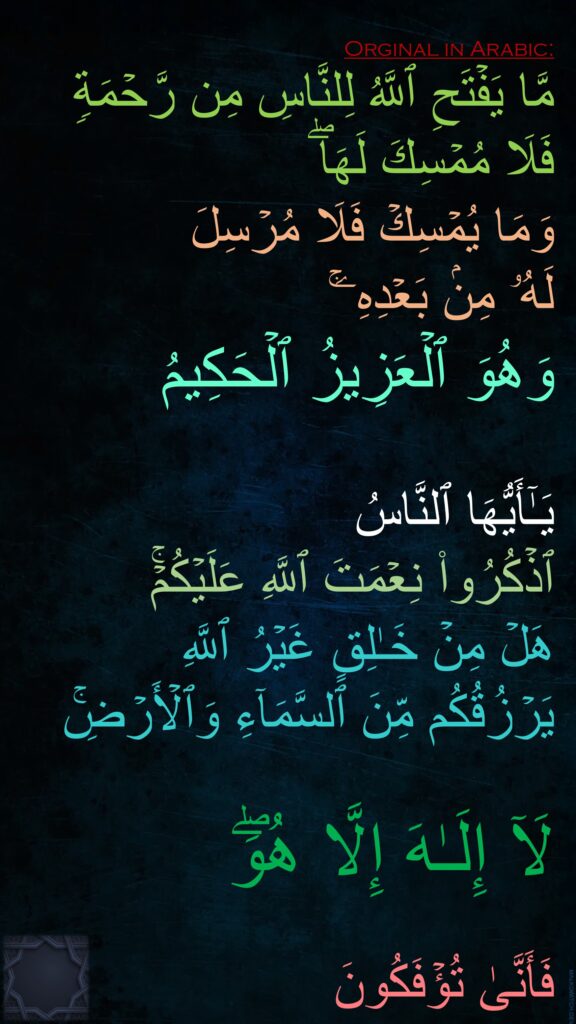 Orginal in Arabic:
مَّا يَفۡتَحِ ٱللَّهُ لِلنَّاسِ مِن رَّحۡمَةٖ
فَلَا مُمۡسِكَ لَهَاۖ
وَمَا يُمۡسِكۡ فَلَا مُرۡسِلَ
لَهُۥ مِنۢ بَعۡدِهِۦۚ
وَهُوَ ٱلۡعَزِيزُ ٱلۡحَكِيمُ
يَـٰٓأَيُّهَا ٱلنَّاسُ
ٱذۡكُرُواْ نِعۡمَتَ ٱللَّهِ عَلَيۡكُمۡۚ
هَلۡ مِنۡ خَٰلِقٍ غَيۡرُ ٱللَّهِ
يَرۡزُقُكُم مِّنَ ٱلسَّمَآءِ وَٱلۡأَرۡضِۚ
لَآ إِلَٰهَ إِلَّا هُوَۖ
فَأَنَّىٰ تُؤۡفَكُونَ